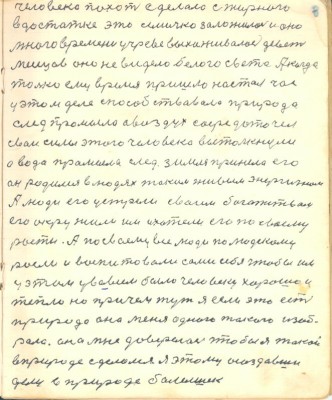 человека похоть сделало с жирного
в достатке это семечко заложилось и оно
много времени у чреве выхаживалось девять
месяцов оно не видело белого света А когда
только ему время пришло настал час
у этом деле способствавала природа
след промыло а воздух сасредоточел
сваи силы этого человека вытолкнули
а вода прамыла след. зимля приняла его
он радился в людях таким живым энергичным
А люди его встрели сваим багатством
его окружили им и хотели его по своему
расти. А по своему все люди по модскому
расли и воспитовали сами себя чтобы им
у этим у вовшем было человеку хорошо и
тепло но причем тут я если это есть
природа она меня одного такого изоб
рала. она мне доверилась чтобы я такой
в природе сделался я этому создавши
делу в природе бальшек